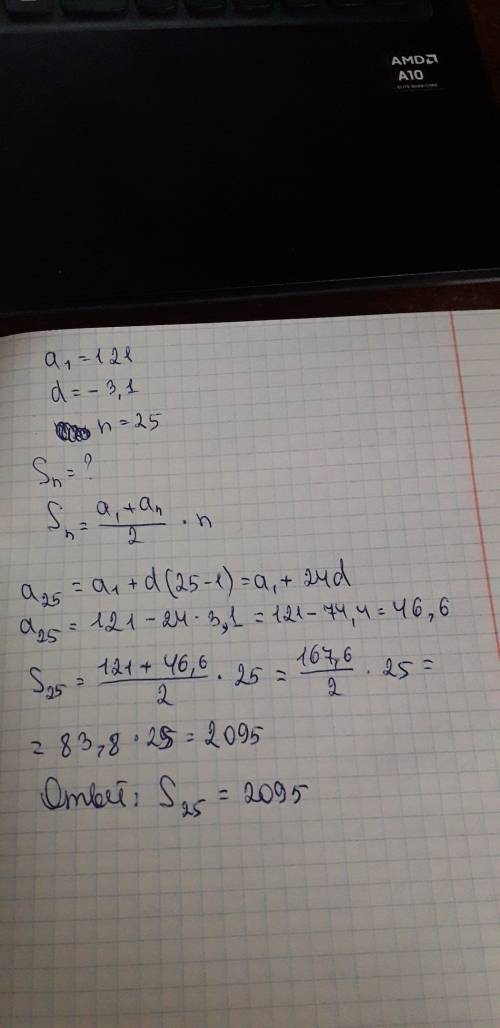 AMD
A10
a₁ = 121
d = - 3,1
n = 25
Sₙ = ?
Sₙ = (a₁ + aₙ)/2 · n
a₂₅ = a₁ + d(25-1) = a₁ + 24d
a₂₅ = 121 - 24 · 3,1 = 121 - 74,4 = 46,6
S₂₅ = (121 + 46,6)/2 · 25 = 167,6/2 · 25 =
= 83,8 · 25 = 2095
Ответ: S₂₅ = 2095